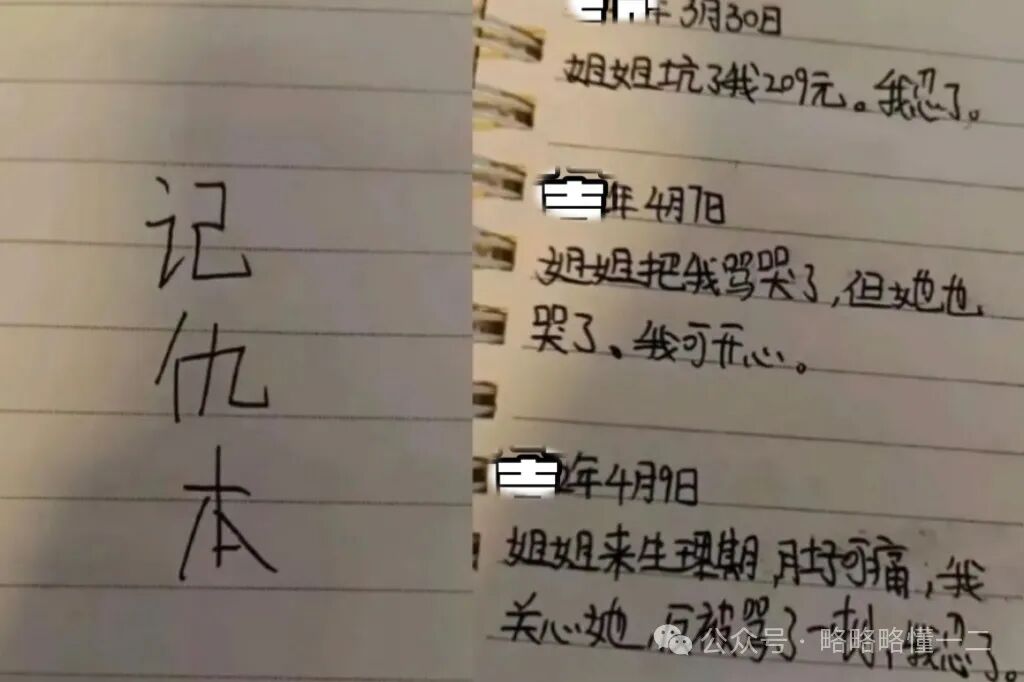 记仇本
年3月30日
姐姐坑了我209元。我忍了。
年4月7日
姐姐把我骂哭了,但她也
哭了。我可开心。
2年4月9日
姐姐来生理期,肚子可痛,我
关心她,反被骂了一 我忍了。
公众号·略略略懂一二